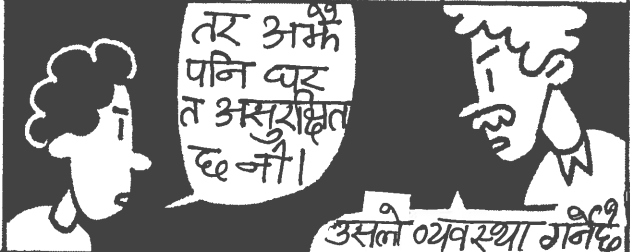 तर अझै
पनि घर
त असुरक्षित
छ नी।
उसले व्यवस्था गर्नेछ